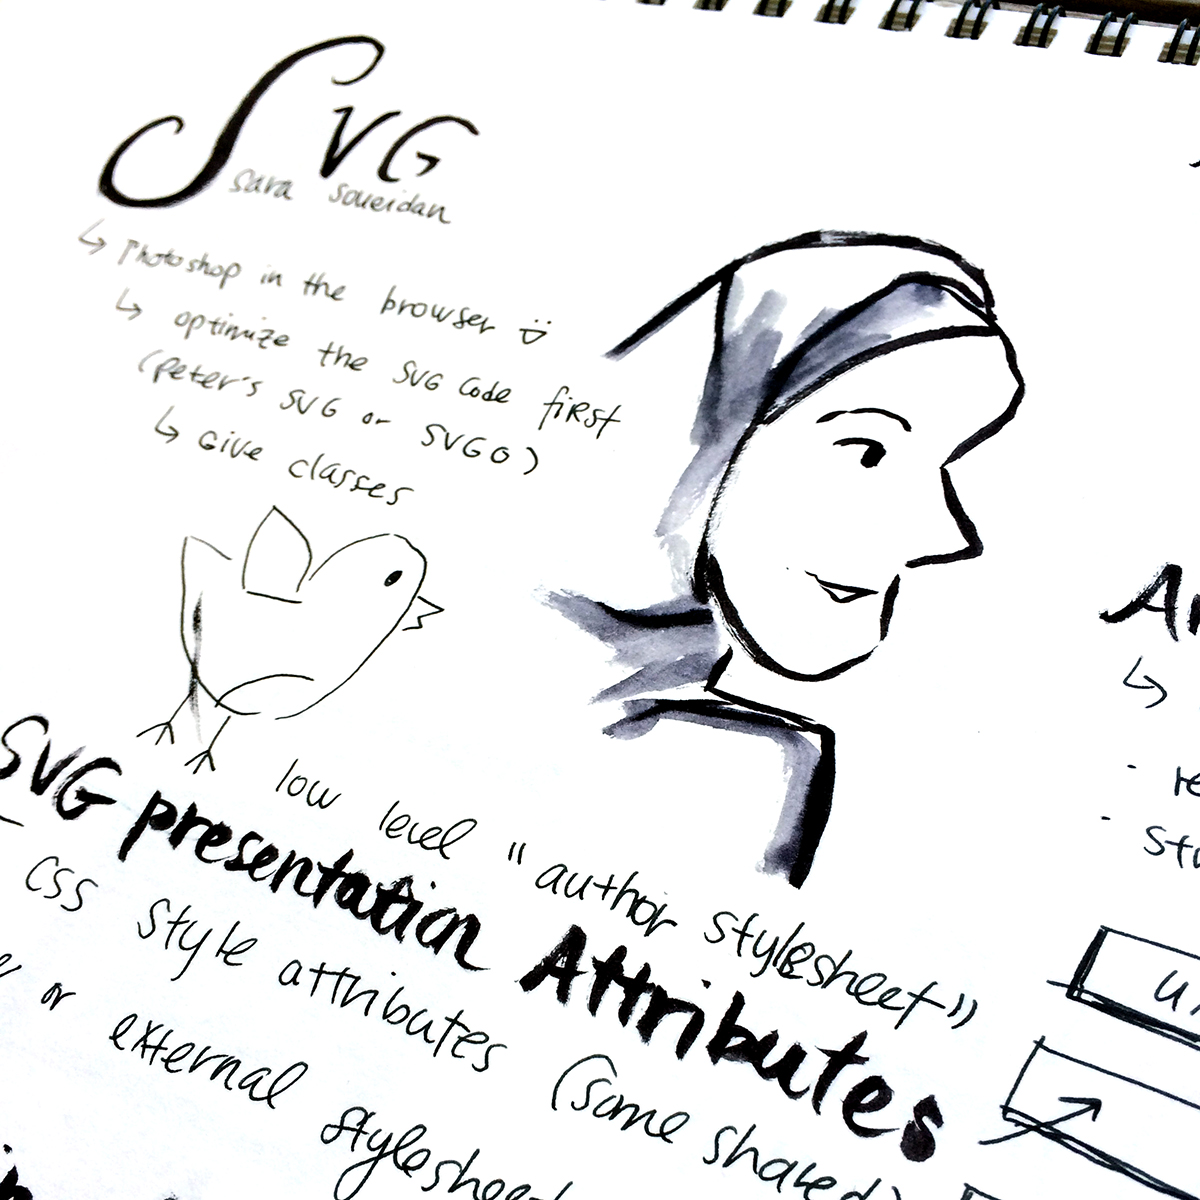 SVG
sara soueidan
↳ Photoshop in the browser
↳ optimize the SVG Code first
(Peter's SVG or SVGO)
↳ Give classes
low level "author stylesheet"
SVG presentation Attributes
CSS style attributes (some shared)
or external
↳